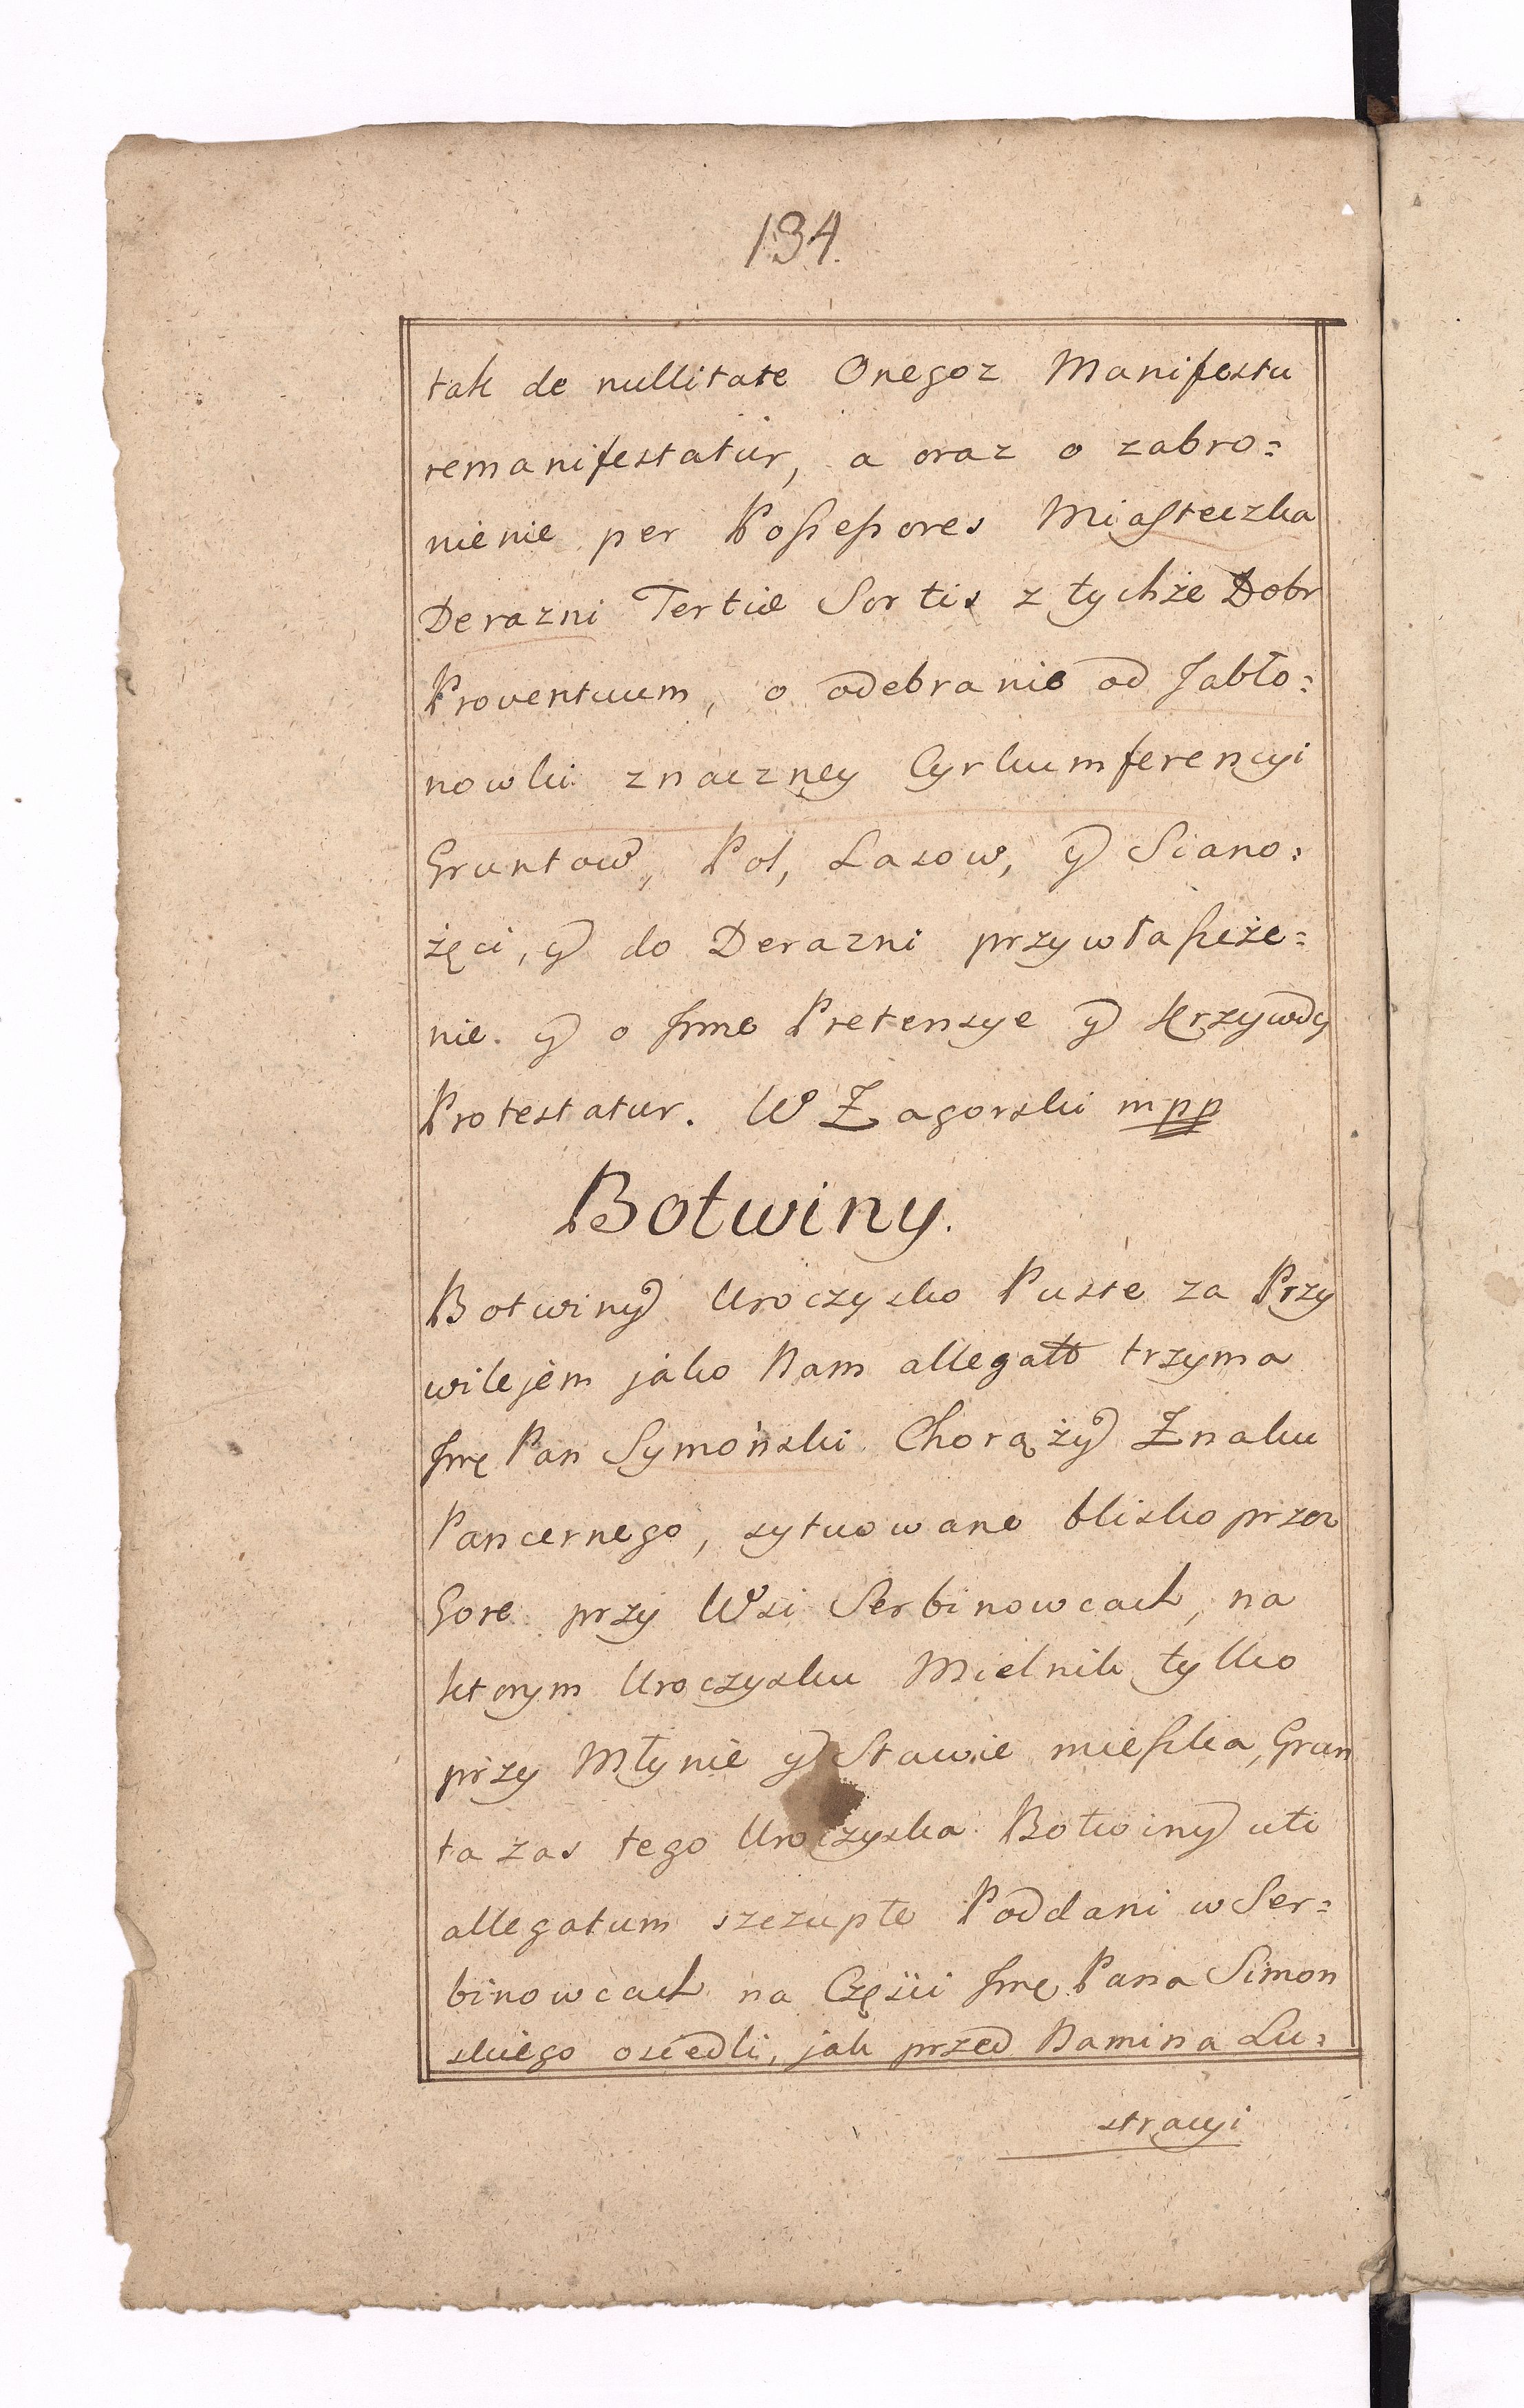 134.
tak de nullitate Onegoz Manifestu
remanifestatur, a oraz o zabro=
nienie per Possessores Miasteczka
Derazni Tertiæ Sortis z tychże Dobr
Proventuum, o odebranie od Jabło=
nowki znaczney Cyrkumferencyi
Gruntow, Pol, Lasow, y Siano=
żęci, y do Derazni przywłaszcze=
nie. y o Inne Pretensye y krzywdy
Protestatur. W Zagorski mpp
Botwiny.
Botwiny Uroczysko Puste za Przy
wilejem jako Nam allegatt trzyma
Jmę Pan Symoński Chorąży Znaku
Pancernego, sytuowane blisko przez
Gore przy Wsi Serbinowcach, na
ktorym Uroczysku Mielnik tylko
przy Młynie y Stawie mieszka, Grun
ta zas tego Uroczyska Botwiny uti
allegatum szczupłe Poddani w Ser=
binowcach na Części Jmę Pana Simon
skiego osiedli, jak przed Namina Lu=
stracyi